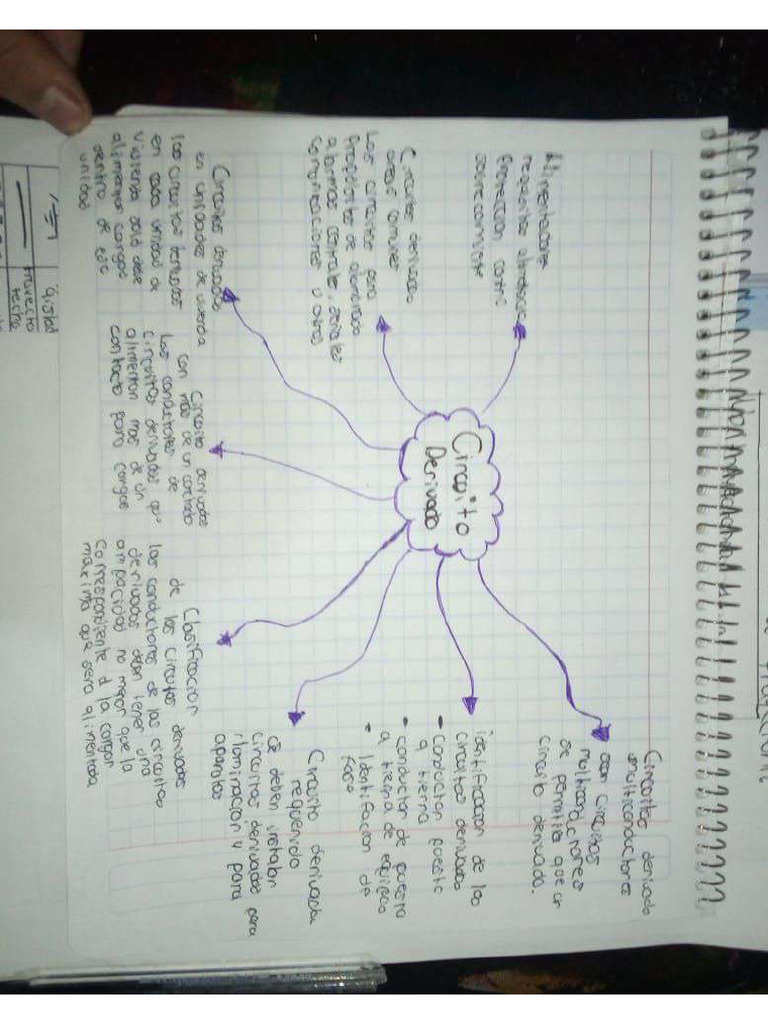 Circuito
Derivado
Alimentadores
requisitos
Protección contra
sobrecorriente
Circuitos derivado
areas comunes
Los circuitos para
Propositos de alumbrado
alarmas centrales, señales
comunicaciones u otros
Circuitos derivados
en unidades de vivienda
los circuitos derivados
en cada unidad de
vivienda solo debe
alimentar cargas
dentro de esa
unidad
Circuito derivados
con mas de un
Los conductores de
circuitos derivados que
alimentan mas de un
contacto para cargas
Clasificacion
de los circuitos derivados
los conductores de los circuitos
derivados deben tener una
ampacidad no mejor que la
correspondiente a la cargar
maxima que sera alimentada
Circuito derivada
requerido
se deben instalar
circuitos derivados para
iluminacion y para
aparatos
identificacion de los
circuitos derivados
• Conductor puesto
a tierra
• conductor de puesta
a tierra de equipos
• Identifacion de
fase
Circuitos derivado
multiconductores
con circuitos
multiconductores
se permitira que un
circuito derivado.